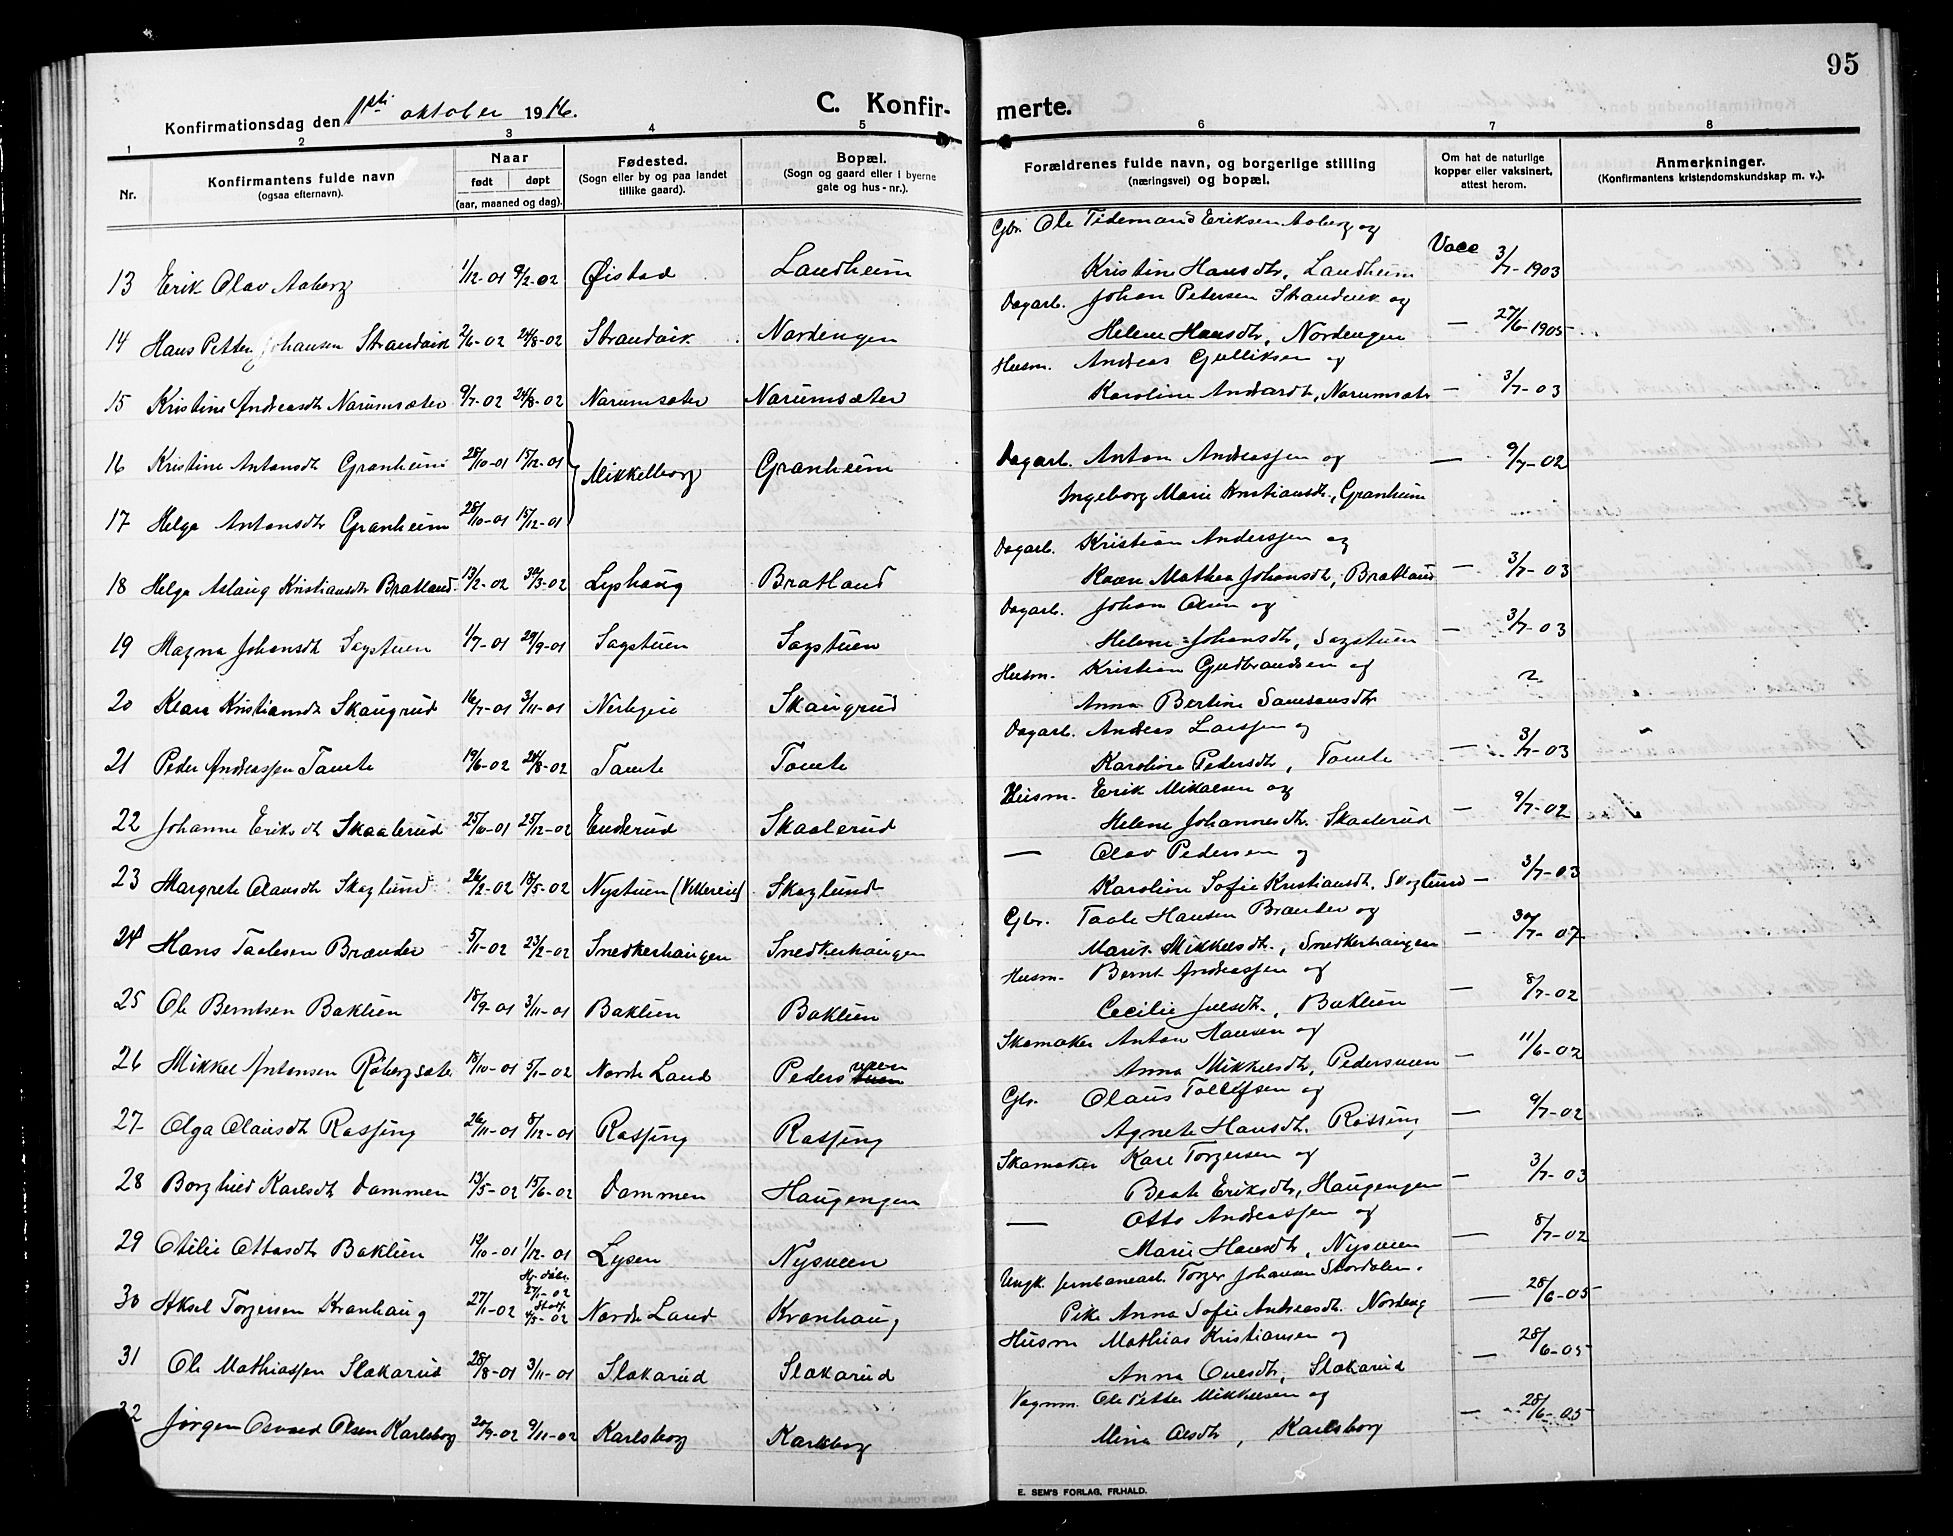 95
Konfirmationsdag den 1ste oktober 1916. C. Konfir- merte.
1 2 3 4 5 6 7 8
Nr. Konfirmantens fulde navn (ogsaa efternavn). Naar født døpt (aar, maaned og dag). Fødested. (Sogn eller by og paa landet tillike gaard). Bopæl. (Sogn og gaard eller i byerne gate og hus-nr.). Forældrenes fulde navn, og borgerlige stilling (næringsvei) og bopæl. Om hat de naturlige kopper eller vaksinert, attest herom. Anmerkninger. (Konfirmantens kristendomskundskap m. v.).
Gbr. Ole Tidemand Eriksen Aaberg og
13 Erik Olav Aaberg 1/12-01 9/2-02 Øistad Landheim Kristine Hansdtr, Landheim Vacc 3/7-1903
Dagarb. Johan Petersen Strandvik og
14 Hans Petter Johansen Strandvik 2/6-02 24/8-02 Strandvik Nordengen Helene Hansdtr, Nordengen — 27/6-1905
Husm. Andreas Gulliksen og
15 Kristine Andreasdtr Narumsæter 9/7-02 24/8-02 Narumsæter Narumsæter Karoline Andersdtr, Narumsæter — 3/7-03
16 Kristine Antonsdtr Granheim 28/10-01 15/12-01 Mikkelborg Granheim Dagarb. Anton Andreassen og — 9/7-02
Ingeborg Marie Kristiansdtr, Granheim
17 Helga Antonsdtr Granheim 28/10-01 15/12-01
Dagarb. Kristian Anderssen og
18 Helga Aslaug Kristiansdtr Bratland 13/2-02 30/3-02 Lyshaug Bratland Karen Mathea Johansdtr, Bratland — 3/7-03
Dagarb. Johan Olsen og
19 Magna Johansdtr Sagstuen 1/7-01 29/9-01 Sagstuen Sagstuen Helene Johansdtr, Sagstuen — 3/7-03
Husm. Kristian Gudbrandsen og
20 Klara Kristiansdtr Skaugrud 16/7-01 3/11-01 Skaugrud Anna Bertine Samsonsdtr ?
Dagarb. Anders Larssen og
21 Peder Andreassen Tomte 19/6-02 24/8-02 Tomte Tomte Karoline Pedersdtr, Tomte — 3/7-03
Husm. Erik Mikalsen og
22 Johanne Eriksdtr Skaalerud 25/10-01 25/12-02 Enderud Skaalerud Helene Johannesdtr. Skaalerud — 9/7-02
— Olav Pedersen og
23 Margrete Olausdtr Skoglund 26/2-02 18/5-02 Nystuen Skoglund Karoline Sofie Kristiansdtr. Skoglund — 3/7-03
Gbr. Taale Hansen Brænden og
24 Hans Taalesen Brænden 5/11-02 23/2-02 Snedkerhaugen Snedkerhaugen Marit Mikkelsdtr., Snedkerhaugen — 30/7-07
Husm. Bernt Andreassen og
25 Ole Berntsen Baklien 18/9-01 3/11-01 Baklien Baklien Cecilie Julsdtr., Baklien — 8/7-02
Skomaker Anton Hansen og
26 Mikkel Antonsen Røbergsæter 18/10-01 5/1-02 Nordre Land Pedersveen Anna Mikkelsdtr, Pedersveen — 11/6-02
Gbr. Olaus Tollefsen og
27 Olga Olausdtr Røssjing 26/11-01 8/12-01 Røssjing Røssjing Agnete Hansdtr. Røssing — 9/7-02
Skomaker Karl Torgersen og
28 Borghild Karlsdtr Dammen 13/5-02 15/6-02 Dammen Haugengen Beate Eriksdtr, Haugengen — 3/7-03
— Otto Andreassen og
29 Otilie Ottosdtr Baklien 12/10-01 1/12-01 Lysen Nysveen Marie Hansdtr, Nysveen — 8/7-02
Hj. døbt 27/1-02 Ungk. jernbanearb. Torger Johansen Stordalen.
30 Aksel Torgersen Kronhaug 27/1-02 4/5-02 Nordre Land Kronhaug Pike Anna Sofie Andreasdtr. Nordeng — 28/6-05
Husm Mathias Kristiansen og
31 Ole Mathiassen Slokarud 28/8-01 3/11-01 Slokarud Slokarud Anna Ouesdtr, Slokarud — 28/6-05
Vognm. Ole Petter Mikkelsen og
32 Jørgen Osvald Olsen Karlsborg 20/9-02 9/11-02 Karlsborg Karlsborg Mina Olsdtr, Karlsborg — 28/6-05
E. SEM'S FORLAG, FR.HALD.